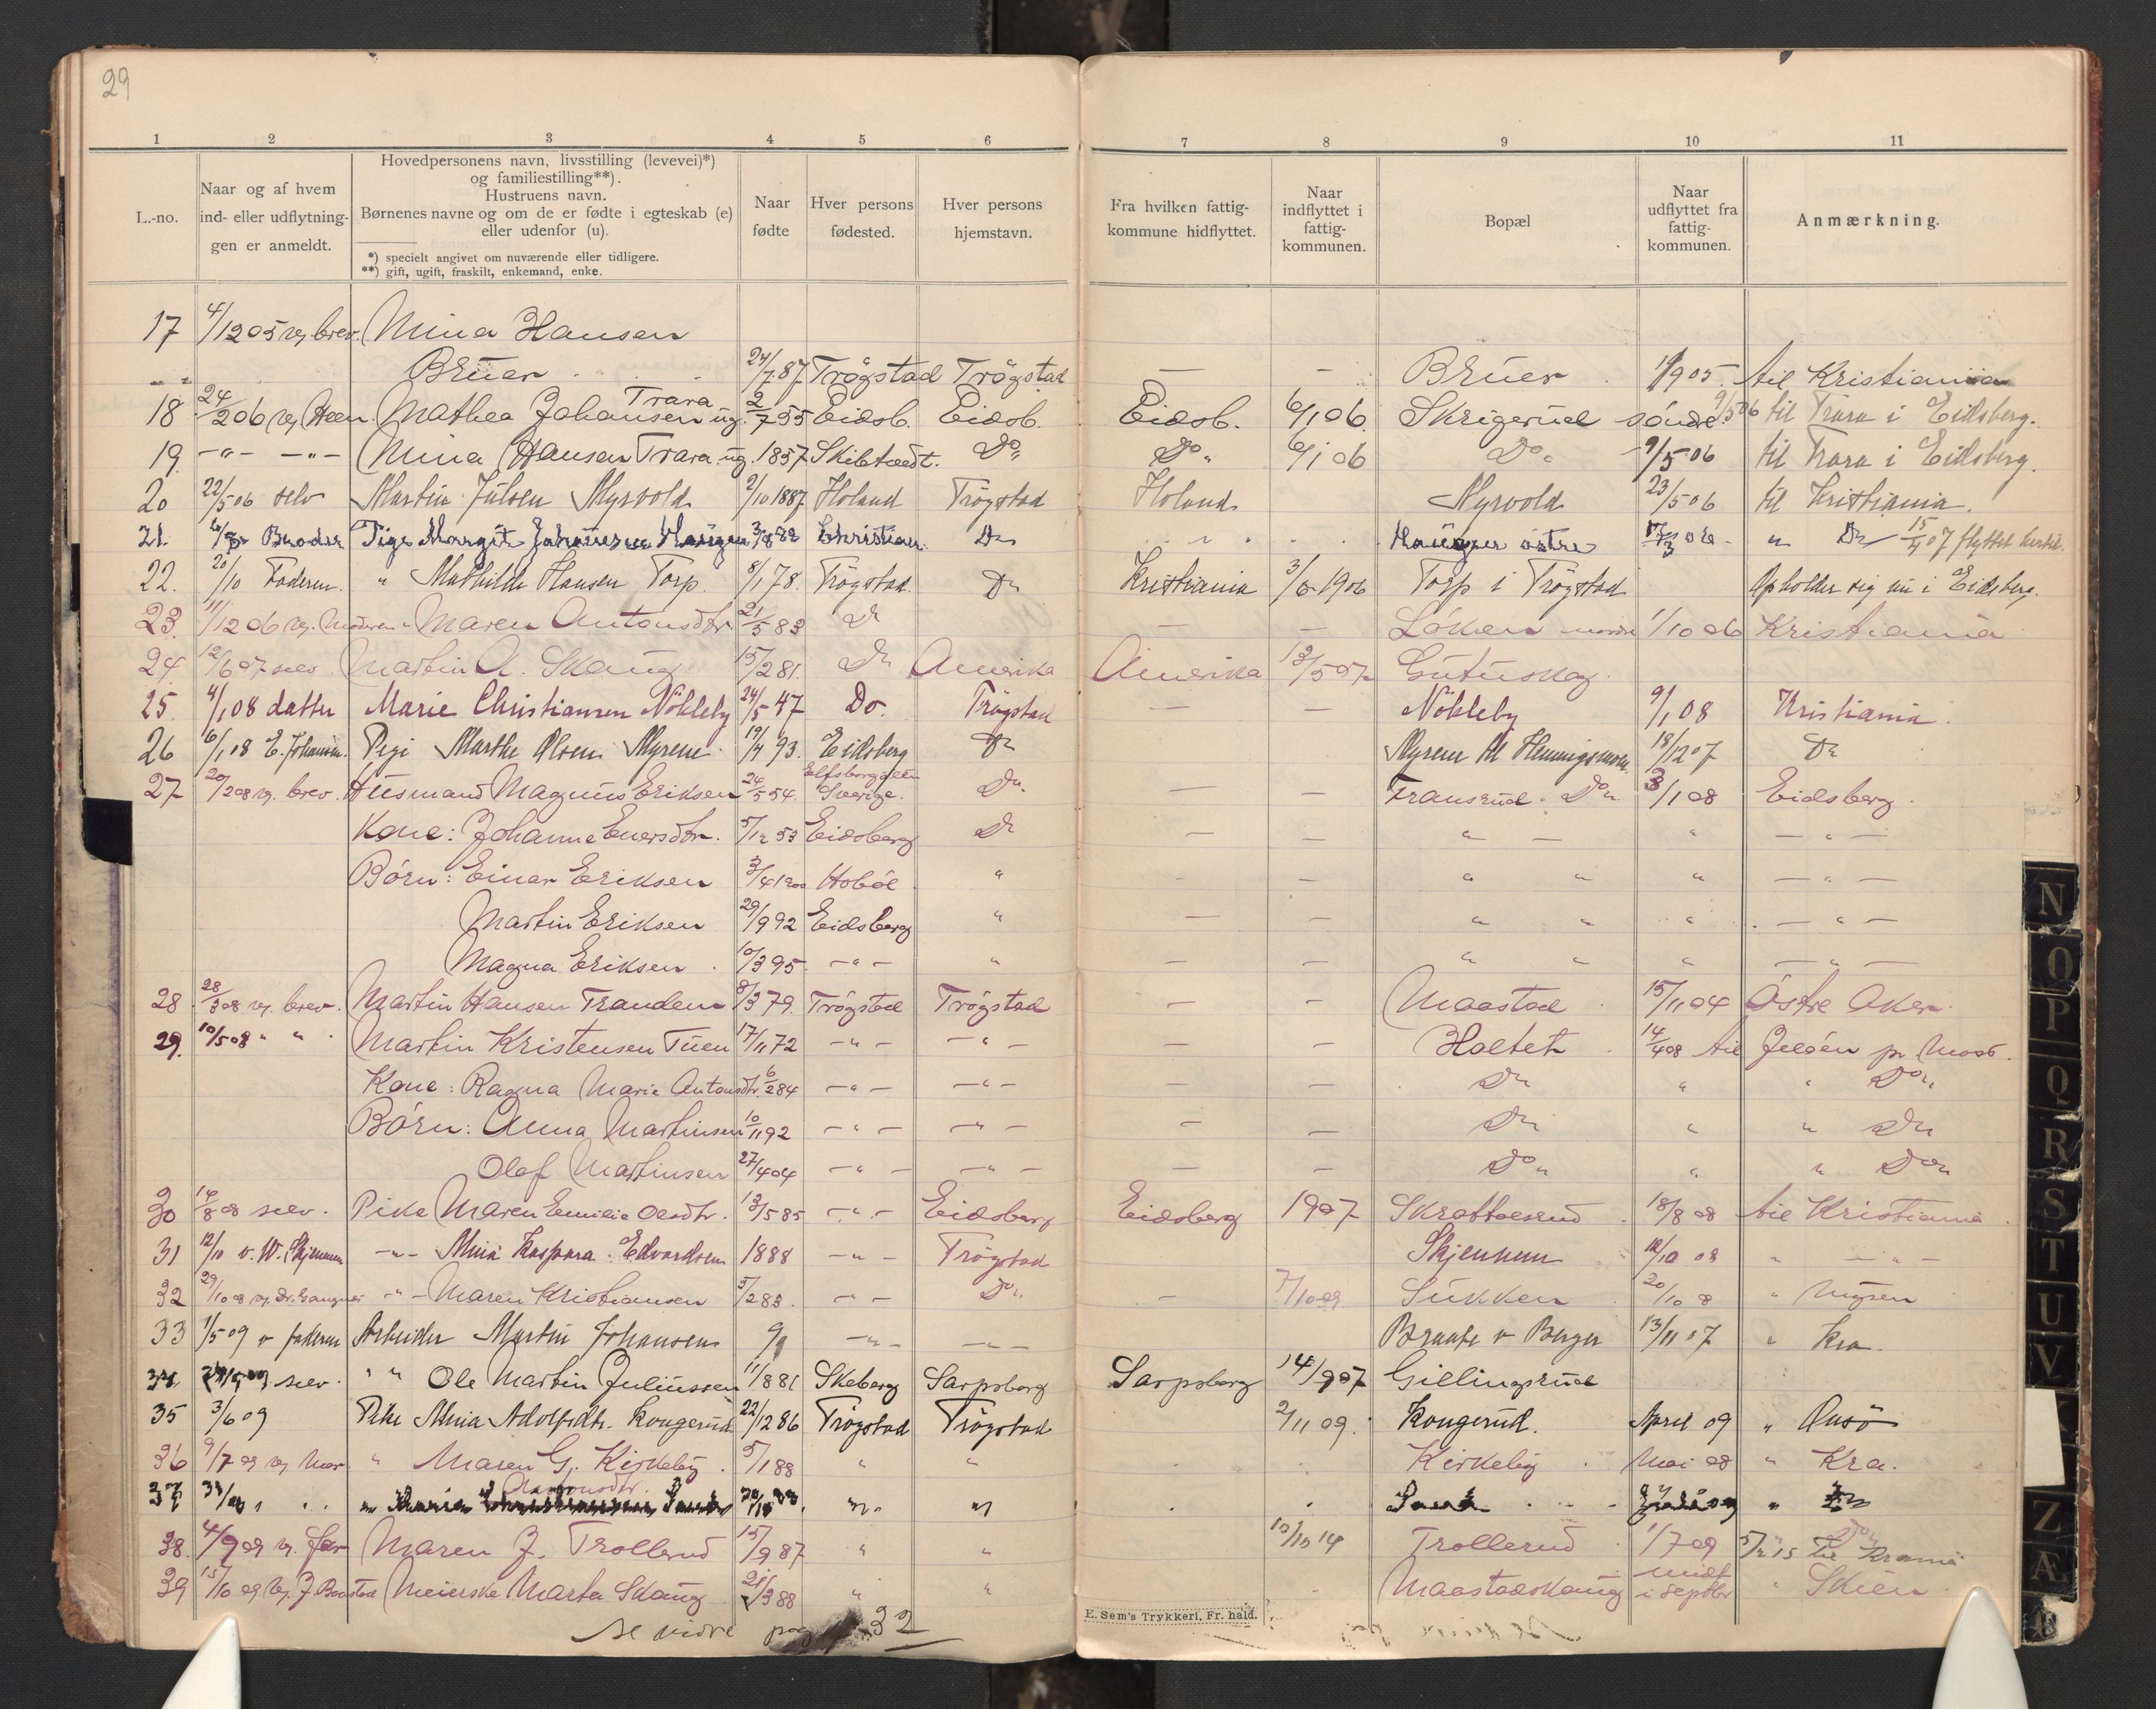 29
1 2 3 4 5 6 7 8 9 10 11
L.-no.
Naar og af hvem
ind- eller udflytnin-
gen er anmeldt.
Hovedpersonens navn, livsstilling (levevei)*)
og familiestilling**).
Hustruens navn.
Børnenes navne og om de er fødte i egteskab (e)
eller udenfor (u).
*) specielt angivet om nuværende eller tidligere.
**) gift, ugift, fraskilt, enkemand, enke.
Naar
fødte
Hver persons
fødested.
Hver persons
hjemstavn.
Fra hvilken fattig-
kommune hidflyttet.
Naar
indflyttet i
fattig-
kommunen.
Bopæl
Naar
udflyttet fra
fattig-
kommunen.
Anmærkning.
17 4/12 05 vg. brev. Mina Hansen
Bruer 24/7 87 Trögstad Trögstad — — Bruer 1/9 05. til Kristiania
18 24/2 06 vg. Heen. Mathea Johansen Trara ug. 2/7 55 Eidsb. Eidsb. Eidsb. 6/1 06. Skrigerud söndre 9/5 06 til Trara i Eidsberg.
19. —"— —"— Mina Hansen Trara ug. 1857 Skibtvedt. Do. Do. 6/1 06 Do. 9/5 06 til Trara i Eidsberg.
20 22/5 06 selv Martin Julsen Myrvold 2/10 1887 Höland Trögstad Höland Myrvold 23/5 06 til Kristiania.
21. Broder Pige Margit Johannesen Haugen 3/8 82 Christian. Do Haugen østre " Do 15/4 07 flyttet hertil.
22. 20/10 Faderen. " Mathilde Hansen Torp. 8/1 78. Trögstad. Do Kristiania 3/6 1906 Torp i Trögstad Opholder sig nu i Eidsberg.
23. 11/12 06 vg. Moderen " Maren Antonsdtr 21/5 83 Do — — Løken nordre 1/10 06 Kristiania
24. 12/6 07 selv. Martin A. Skaug 15/2 81. Do Amerika Amerika 13/5 07 Gutuskog.
25. 4/1 08 datter Marie Christiansen Nökleby 24/5 47 Do. Trögstad — — Nökleby 9/1 08 Kristiania.
26 6/1 08 E. Johansen. Pige Marthe Olsen Myrene. 19/4 93. Eidsberg Do Myrene til Henningsmoen. 18/12 07 Do
27 20/2 08 vg. brev. Husmand Magnus Eriksen 24/5 54. Elfsborg Sverige. Do. — — Transrud. Do. 3/1 08 Eidsberg.
Kone: Johanne Evensdtr. 5/12 53 Eidsberg Do — — " — " — " —
Børn: Einar Eriksen 3/4 1900 Hobøl " — — " " " — " —
Martin Eriksen 29/9 92 Eidsberg " — — " " " — " —
Magna Eriksen. 10/3 95. — " — " — — " " " — " —
28. 28/3 08 vg. brev. Martin Hansen Trandem 8/3 79. Trögstad Trögstad — — Maastad 15/11 04 Østre Aker.
29. 10/5 08 " " Martin Kristensen Tuen 17/11 72 — " — — " — — — Holtet 14/4 08 til Jeløen pr. Moss.
Kone: Ragna Marie Antonsdtr. 6/2 84 — " — — " — — — Do " " Do.
Børn: Anna Martinsen 10/11 92 — " — — " — — — Do " " Do
Olaf Martinsen 27/4 04 — " — — " — — — Do. " " Do.
30 14/8 08 selv. Pike Maren Emilie Olsdtr. 13/5 85 — " — Eidsberg Eidsberg 1907 Skrattesrud 18/8 08 til Kristiania.
31 12/10 v. W. Skjennum —"— Mina Kaspara Edvardsen 1888 — " — Trögstad Skjennum 12/10 08 " — " —
32 29/10 08 —"— Maren Kristiansen 5/2 83. — " — Do. — 7/10 09. Sukken 20/10 8 " Mysen
33 1/5 09 v faderen Arbeider Martin Johansen — " — — " — Braate v Berger 13/11 07 " Kra.
34 selv. " " Ole Martin Juliussen 11/8 81 Skeberg Sarpsborg Sarpsborg 14/9 07 Gillingsrud
35 3/6 09 Pike Mina Adolfsdtr. Kongerud. 22/12 86 Trögstad Trögstad 2/11 09. Kongerud. April 09 " Onsö
36 9/7 09 vg. Mor. " Maren G. Kirkeby. 5/1 88 " " Kirkeby. Mai 08 " Kra.
37 " " " "
38. 4/9 09 vg. far Maren J. Trollerud 15/9 87 " " 10/10 14 Trollerud 1/7 09 Do. 5/2 15 Til Krania
39 15/10 09 vg. J. Baastad Meierske Marta Skaug 21/3 88 " " Maastadskaug midt i septbr " Skien
se videre pag 32
E. Sem's Trykkeri, Fr. hald.
N
O
P
Q
R
S
T
U
V
Z
Æ